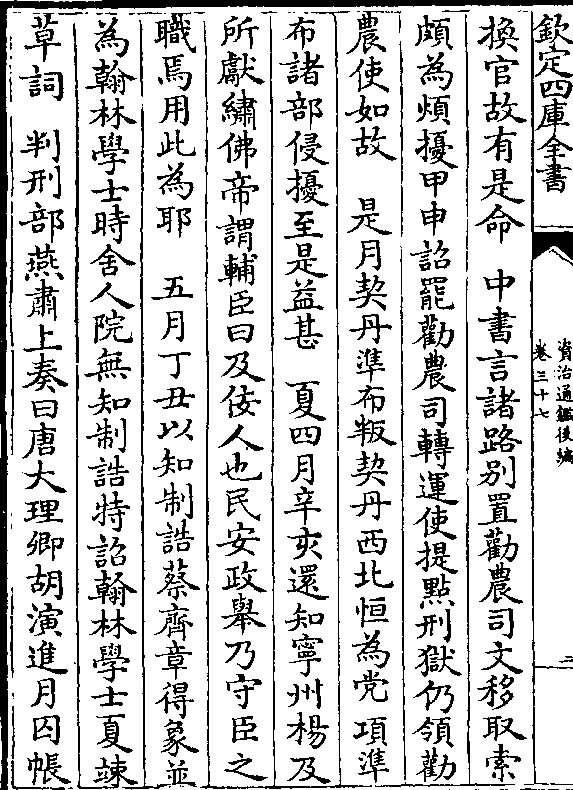 欽定四庫全書
資治通鑑後編
卷三十七
二
換官故有是命　中書言諸路别置勸農司文移取索
頗為煩擾甲申詔罷勸農司轉運使提點刑獄仍領勸
農使如故　是月契丹準布叛契丹西北恒為党項準
布諸部侵擾至是益甚　夏四月辛亥還知寧州楊及
所獻繡佛帝謂輔臣曰及佞人也民安政舉乃守臣之
職焉用此為耶　五月丁丑以知制誥蔡齊章得象並
為翰林學士時舍人院無知制誥特詔翰林學士夏竦
草詞　判刑部燕肅上奏曰唐大理卿胡演進月囚帳